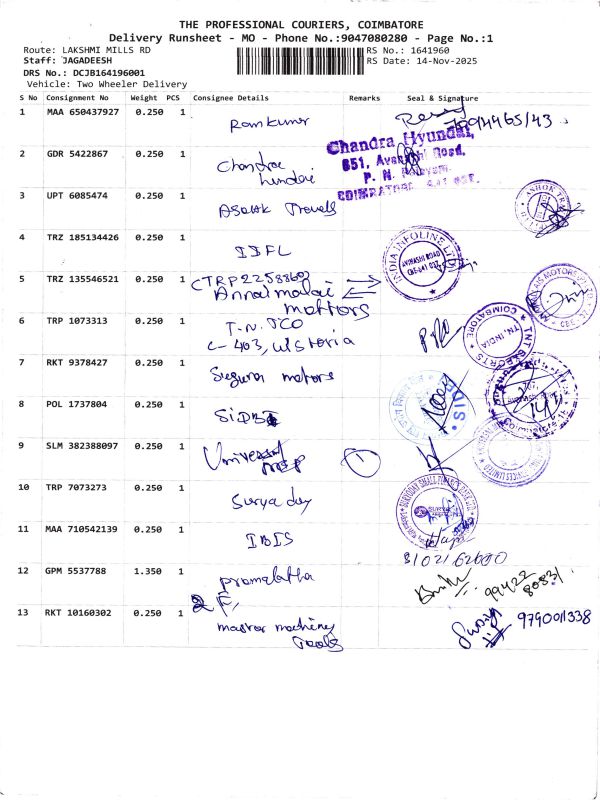 THE PROFESSIONAL COURIERS, COIMBATORE
Delivery Runsheet - MO - Phone No.:9047080280 - Page No.:1
Route: LAKSHMI MILLS RD
RS No.: 1641960
Staff: JAGADEESH
RS Date: 14-Nov-2025
DRS No.: DCJB164196001
Vehicle: Two Wheeler Delivery
S No Consignment No Weight PCS Consignee Details Remarks Seal & Signature
1 MAA 650437927 0.250 1 Ramkumar
Chandra Hyundai,
2 GDR 5422867 0.250 1 Chandra
651, Road,
P. N.
hundai
COIMBATORE
3 UPT 6085474 0.250 1 Ashok Travels
ASHOK
4 TRZ 185134426 0.250 1 IIFL
INDIA INFOLINE LTD
AVINASHI ROAD
5 TRZ 135546521 0.250 1 CTRP2258860
Annai malai
mottors
6 TRP 1073313 0.250 1 T-N.JCO
C-403, ulstoria
COIMBATORE
TNT INDIA
7 RKT 9378427 0.250 1 Suguna motors
8 POL 1737804 0.250 1 SIDBI
9 SLM 382388097 0.250 1 Universal
1
10 TRP 7073273 0.250 1 Surya day
SURYODAY SMALL FINANCE BANK
11 MAA 710542139 0.250 1 IBIS
12 GPM 5537788 1.350 1 pramalatha
99422
80831
13 RKT 10160302 0.250 1
mastor machiney
Tools
9790011338